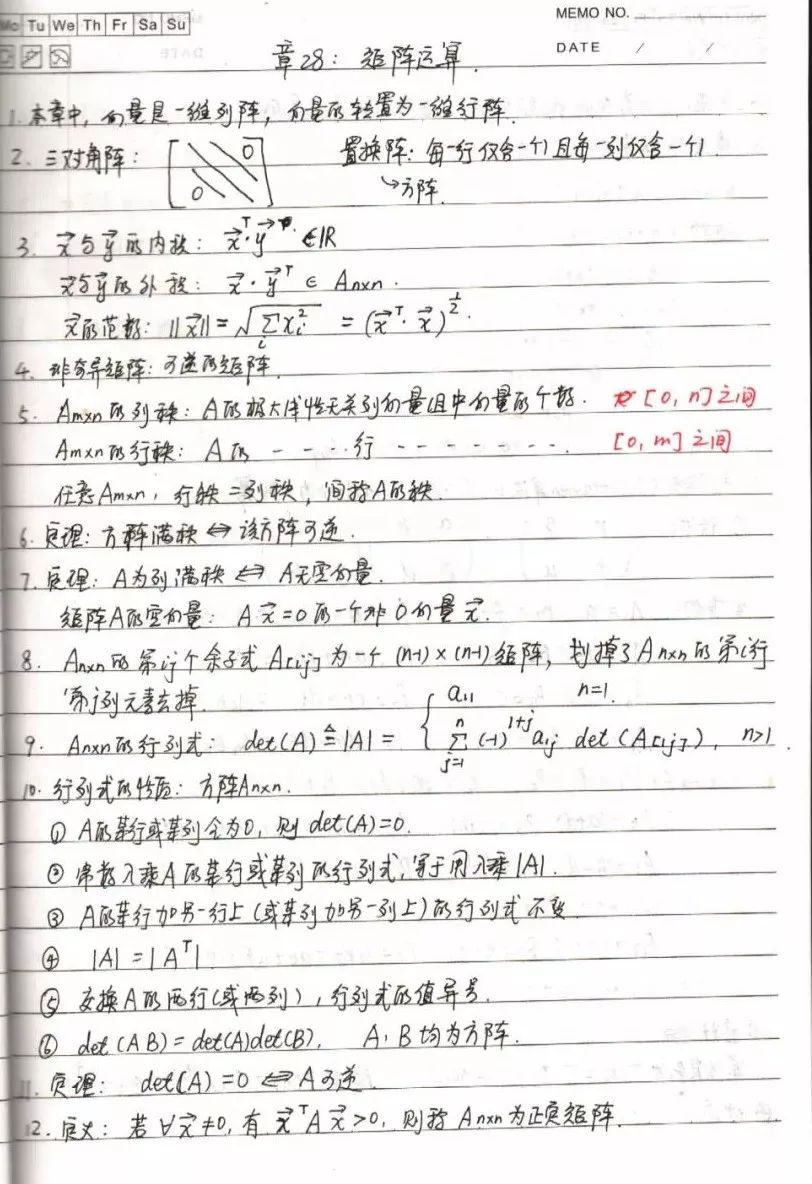 Mo Tu We Th Fr Sa Su
MEMO NO.
DATE / /
章28: 矩阵运算.
1. 本章中, 向量是一维列阵, 向量的转置为一维行阵.
2. 三对角阵: [0 0] 置换阵: 每一行仅含一个1且每一列仅含一个1.
↳方阵.
3. x⃗与y⃗的内积: x⃗ᵀ·y⃗ ∈ℝ
x⃗与y⃗的外积: x⃗·y⃗ᵀ ∈ Anxn.
x⃗的范数: ||x⃗|| = √(∑ᵢxᵢ²) = (x⃗ᵀ·x⃗)^½.
4. 非奇异矩阵: 可逆的矩阵.
5. Amxn的列秩: A的极大线性无关列向量组中向量的个数. [0, n]之间
Amxn的行秩: A的 - - - 行 - - - - - - - - -. [0, m]之间
任意Amxn, 行秩=列秩, 简称A的秩.
6. 定理: 方阵满秩 ⇔ 该方阵可逆.
7. 定理: A为列满秩 ⇔ A无空向量.
矩阵A的空向量: Ax⃗=0的一个非0向量x⃗.
8. Anxn的第ij个余子式A[ij]为一个(n-1)×(n-1)矩阵, 划掉了Anxn的第i行
第j列元素去掉.
9. Anxn的行列式: det(A)≜|A| = { a₁₁ n=1. ∑ⁿⱼ₌₁ (-1)^(1+j) a₁ⱼ det(A[1j]), n>1.
10. 行列式的性质: 方阵Anxn.
① A的某行或某列全为0, 则det(A)=0.
② 常数λ乘A的某行或某列的行列式, 等于用λ乘|A|.
③ A的某行加另一行上(或某列加另一列上)的行列式不变.
④ |A|=|Aᵀ|.
⑤ 交换A的两行(或两列), 行列式的值异号.
⑥ det(AB)=det(A)det(B), A, B均为方阵.
11. 定理: det(A)=0 ⇔ A可逆.
12. 定义: 若∀x⃗≠0, 有x⃗ᵀAx⃗>0, 则称Anxn为正定矩阵.